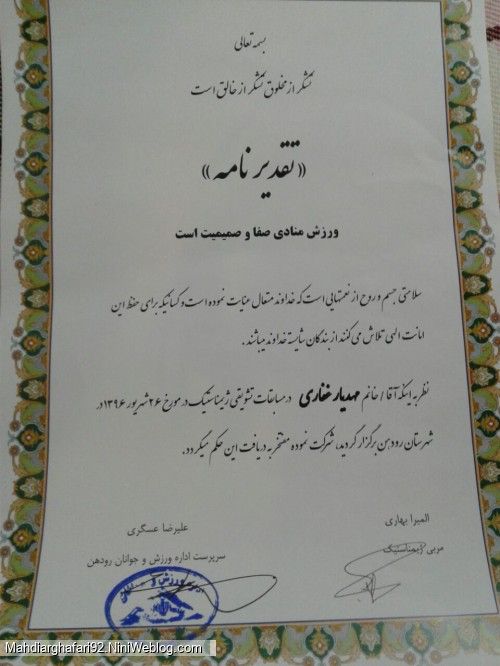 بسمه تعالی
تشکر از مخلوق تشکر از خالق است
«تقدیر نامه»
ورزش منادی صفا و صمیمیت است
سلامتی جسم و روح از نعمتهایی است که خداوند متعال عنایت نموده است و کسانیکه برای حفظ این
امانت الهی تلاش می کنند از بندگان شایسته خداوند میباشند .
نظر به اینکه آقا / خانم مهدیار غفاری در مسابقات تشویقی ژیمناستیک در مورخ ۲۶ شهریور ۱۳۹۶ در
شهرستان رودهن برگزار گردید، شرکت نموده مفتخر به دریافت این حکم میگردد.
المیرا بهاری
مربی ژیمناستیک
علیرضا عسگری
سرپرست اداره ورزش و جوانان رودهن
Mahdiarghafari92.NiniWeblog.com